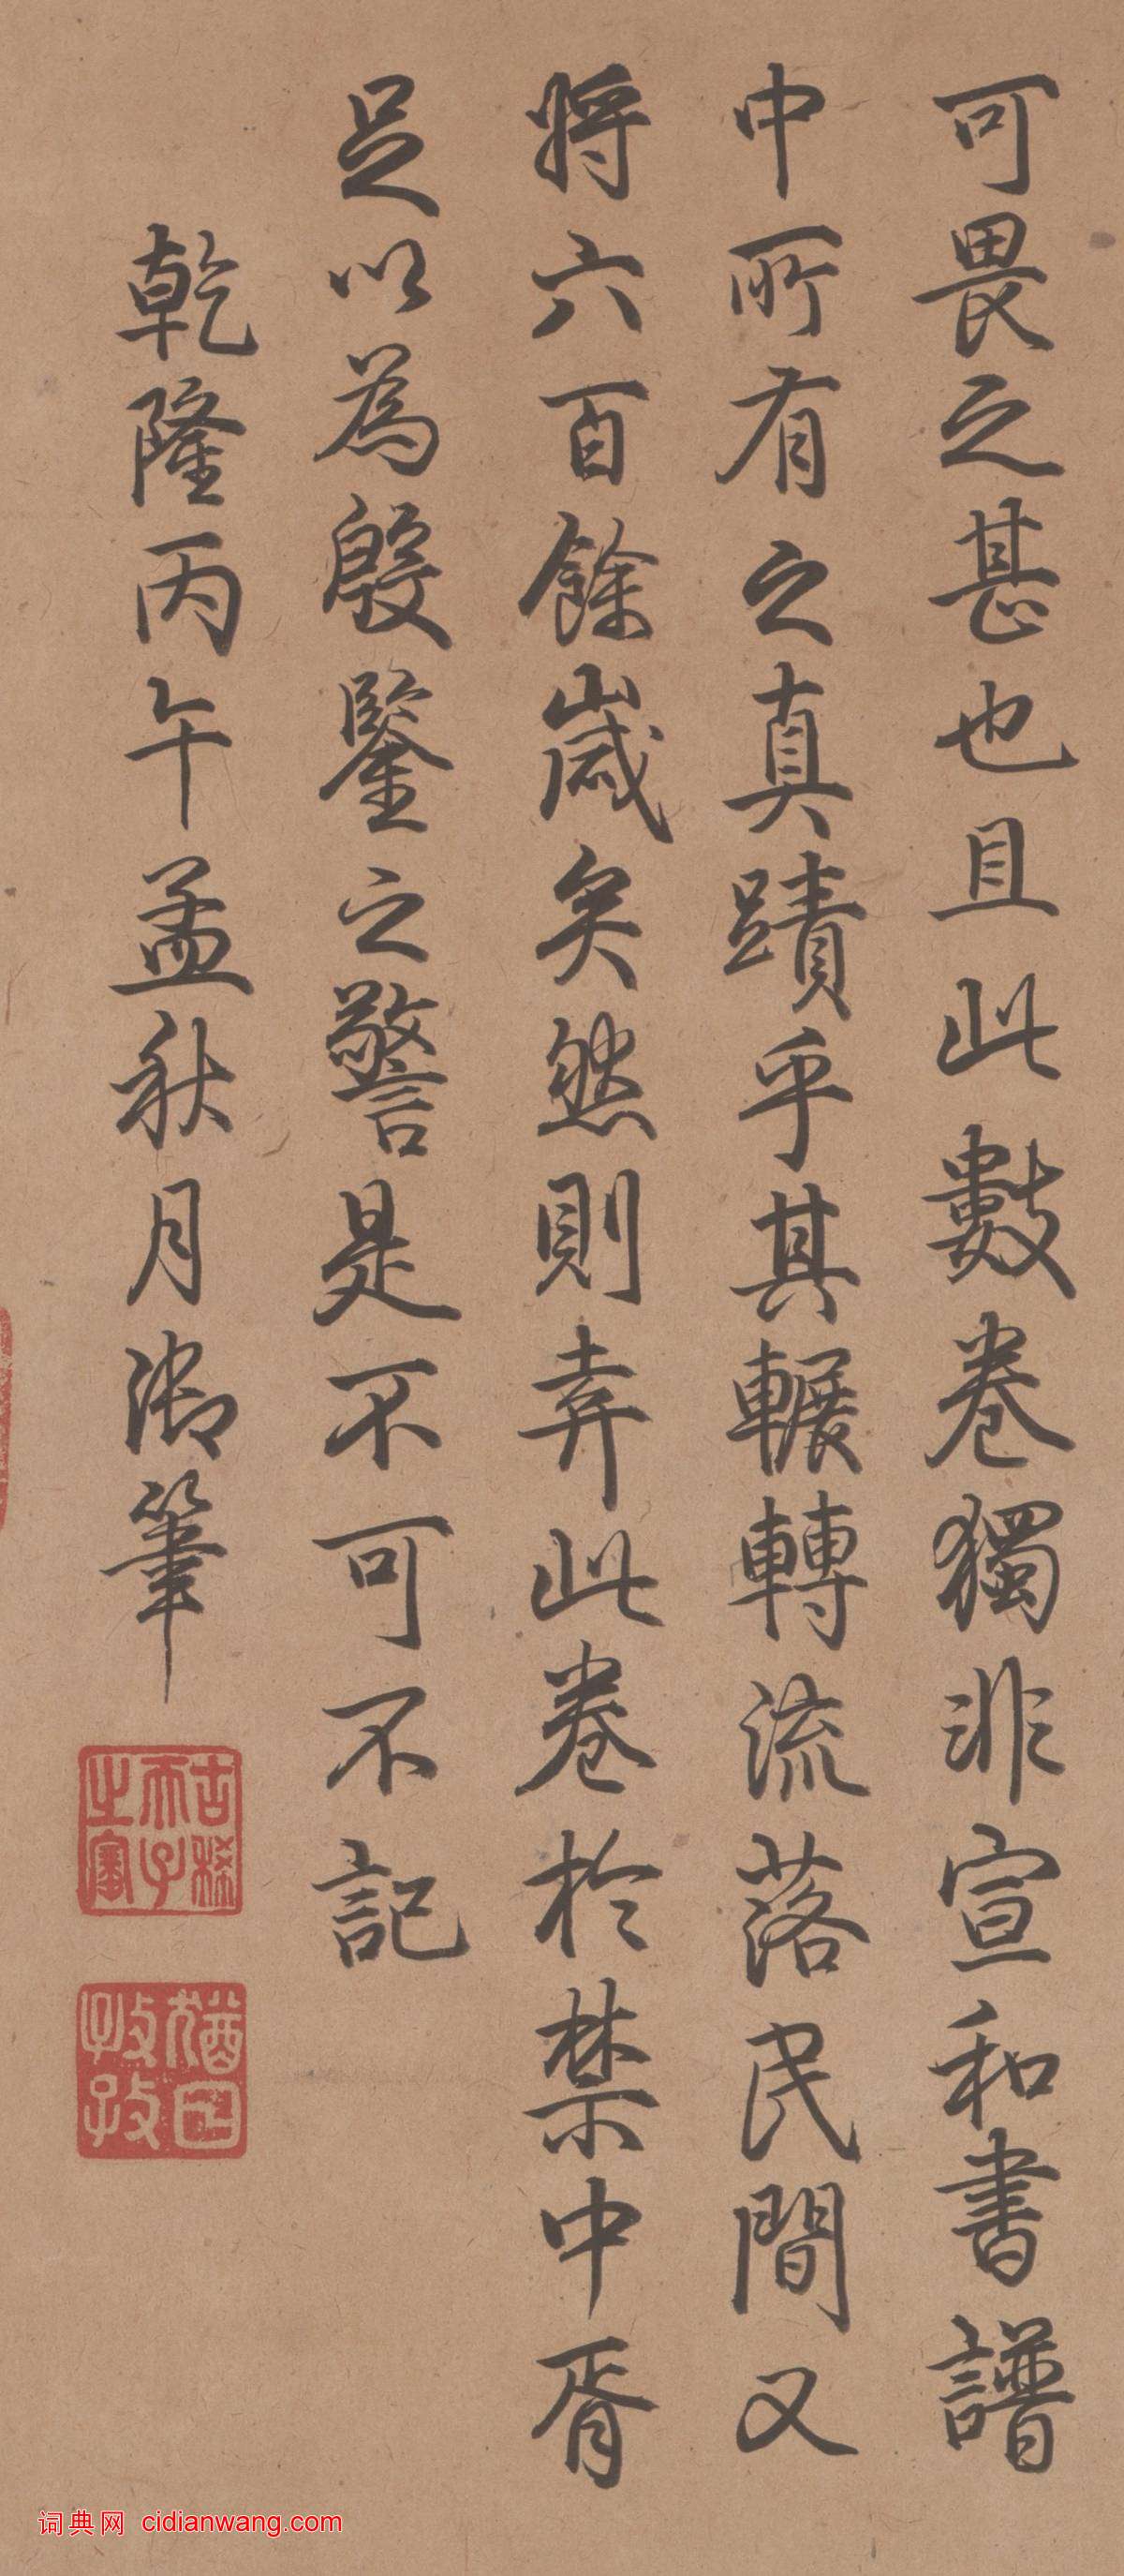 可畏之甚也且此數卷獨非宣和書譜
中所有之真蹟乎其輾轉流落民間又
將六百餘歲矣然則弆此卷於禁中胥
足以為殷鑒之警是不可不記
乾隆丙午孟秋月御筆
古稀天子之寶
猶日孜孜
词典网 cidianwang.com